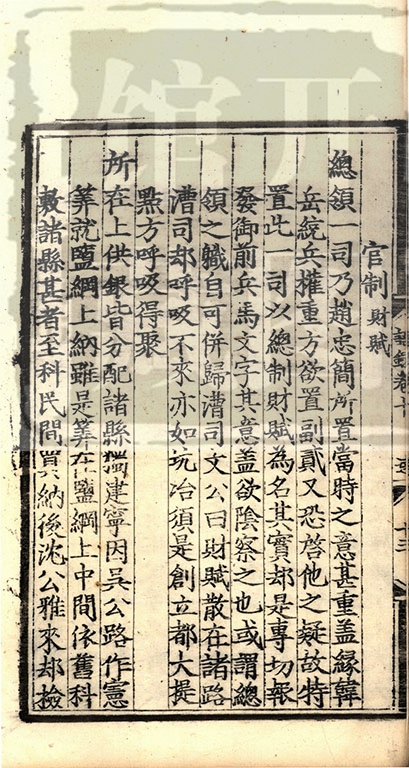 官制財賦
總領一司乃趙忠簡所置當時之意甚重蓋緣韓
岳統兵權重方欲置副貳又恐啓他之疑故特
置此一司以總制財賦為名其實却是專切報
發御前兵馬文字其意盖欲陰察之也或謂總
領之職自可併歸漕司文公曰財賦散在諸路
漕司却呼吸不來亦如坑冶須是創立都大提
點方呼吸得聚
所在上供銀皆分配諸縣獨建寧因吳公路作憲
筭就鹽綱上納雖是筭在鹽綱上中間依舊科
敷諸縣甚者至科民間買納後沈公雅來却撿